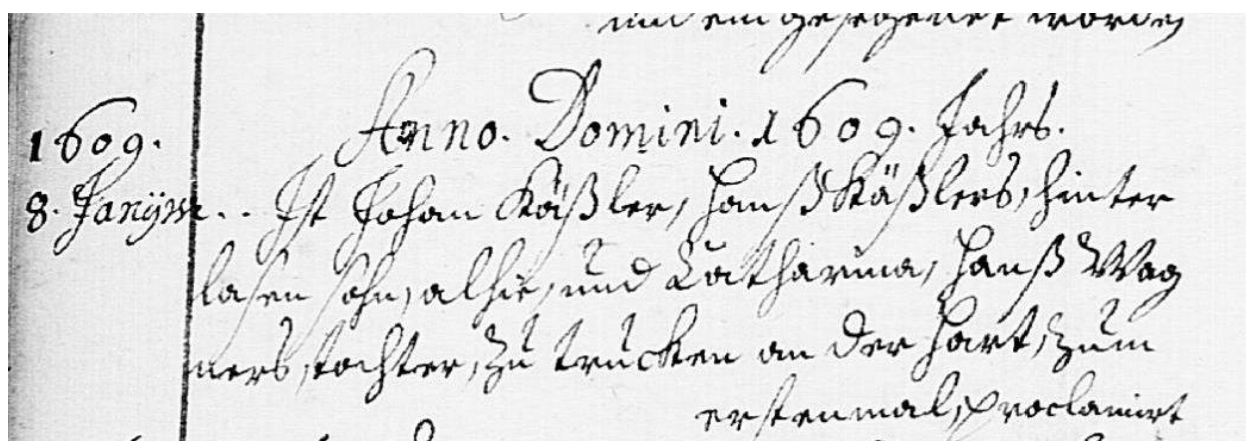 und eingesegenet worden
Anno. Domini. 1609. Jahrs.
1609.
8. Januar.. Ist Johan Käßler, Hanß Käßlers, hinter
lasen sohn, alhie, und Catharina, Hanß Wag
ners, tochter, zu trucken an der Hart, zum
erstenmal, proclamirt